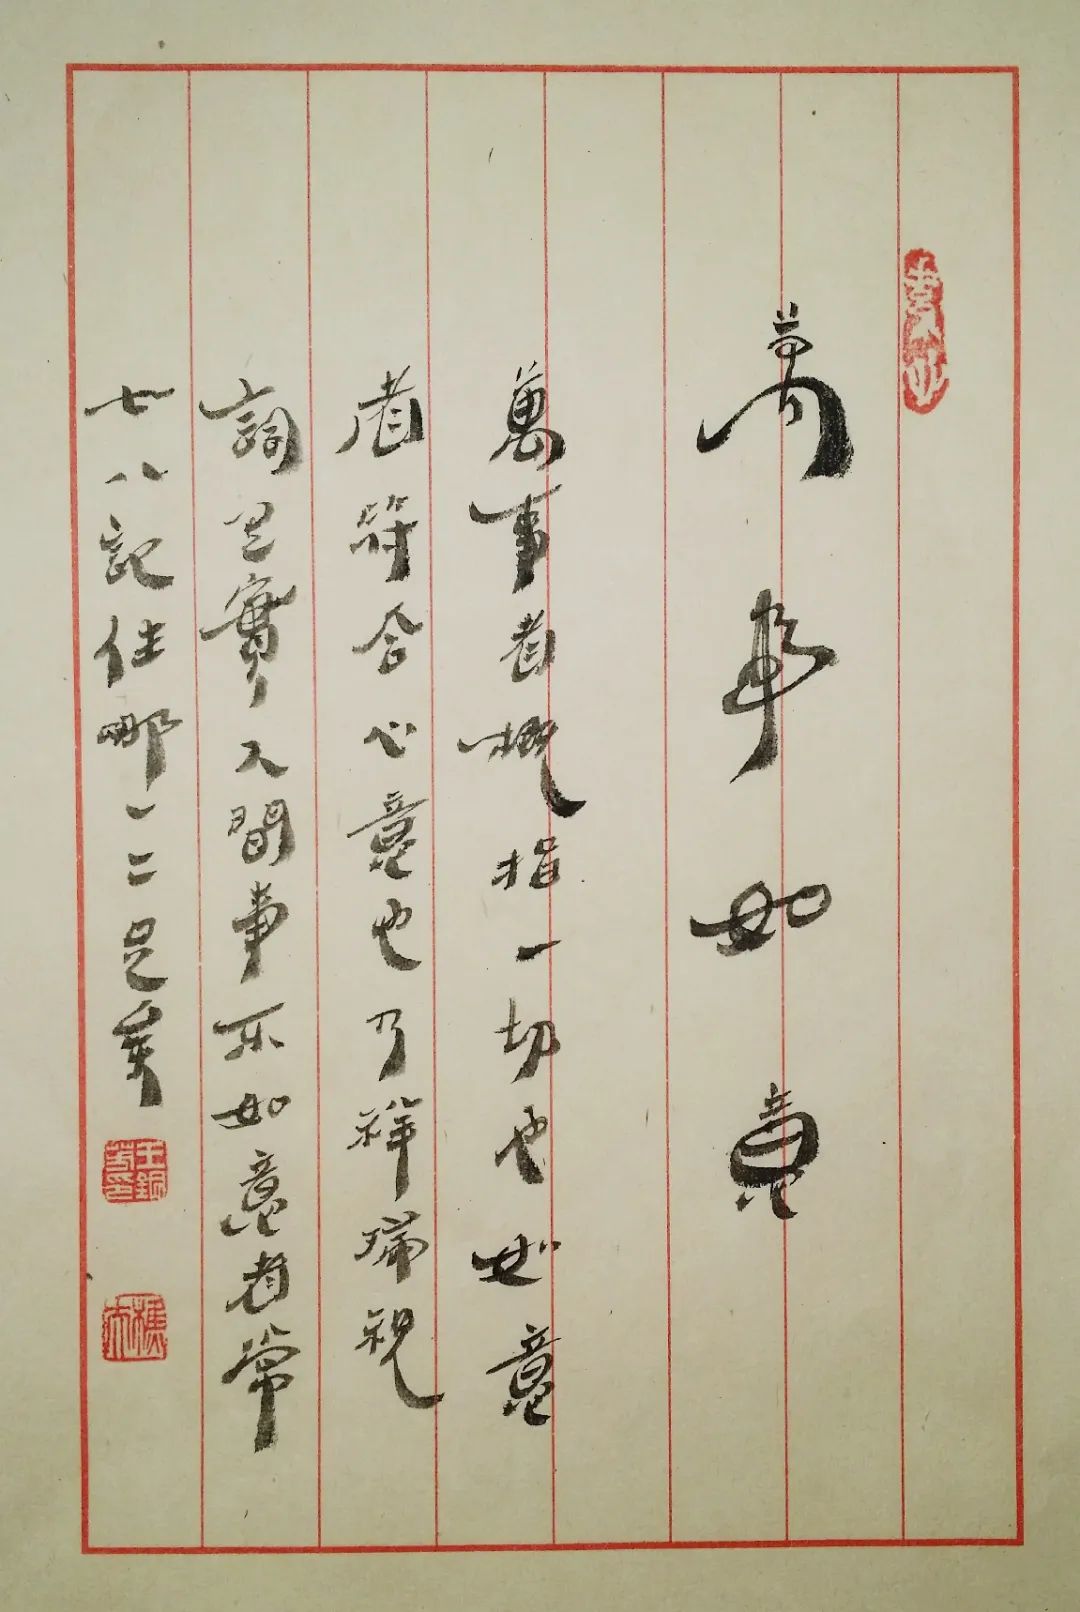 萬事如意
萬事者概指一切也如意
者符合心意也乃祥瑞祝
詞是實人間事不如意者常
七八記住那一二足矣